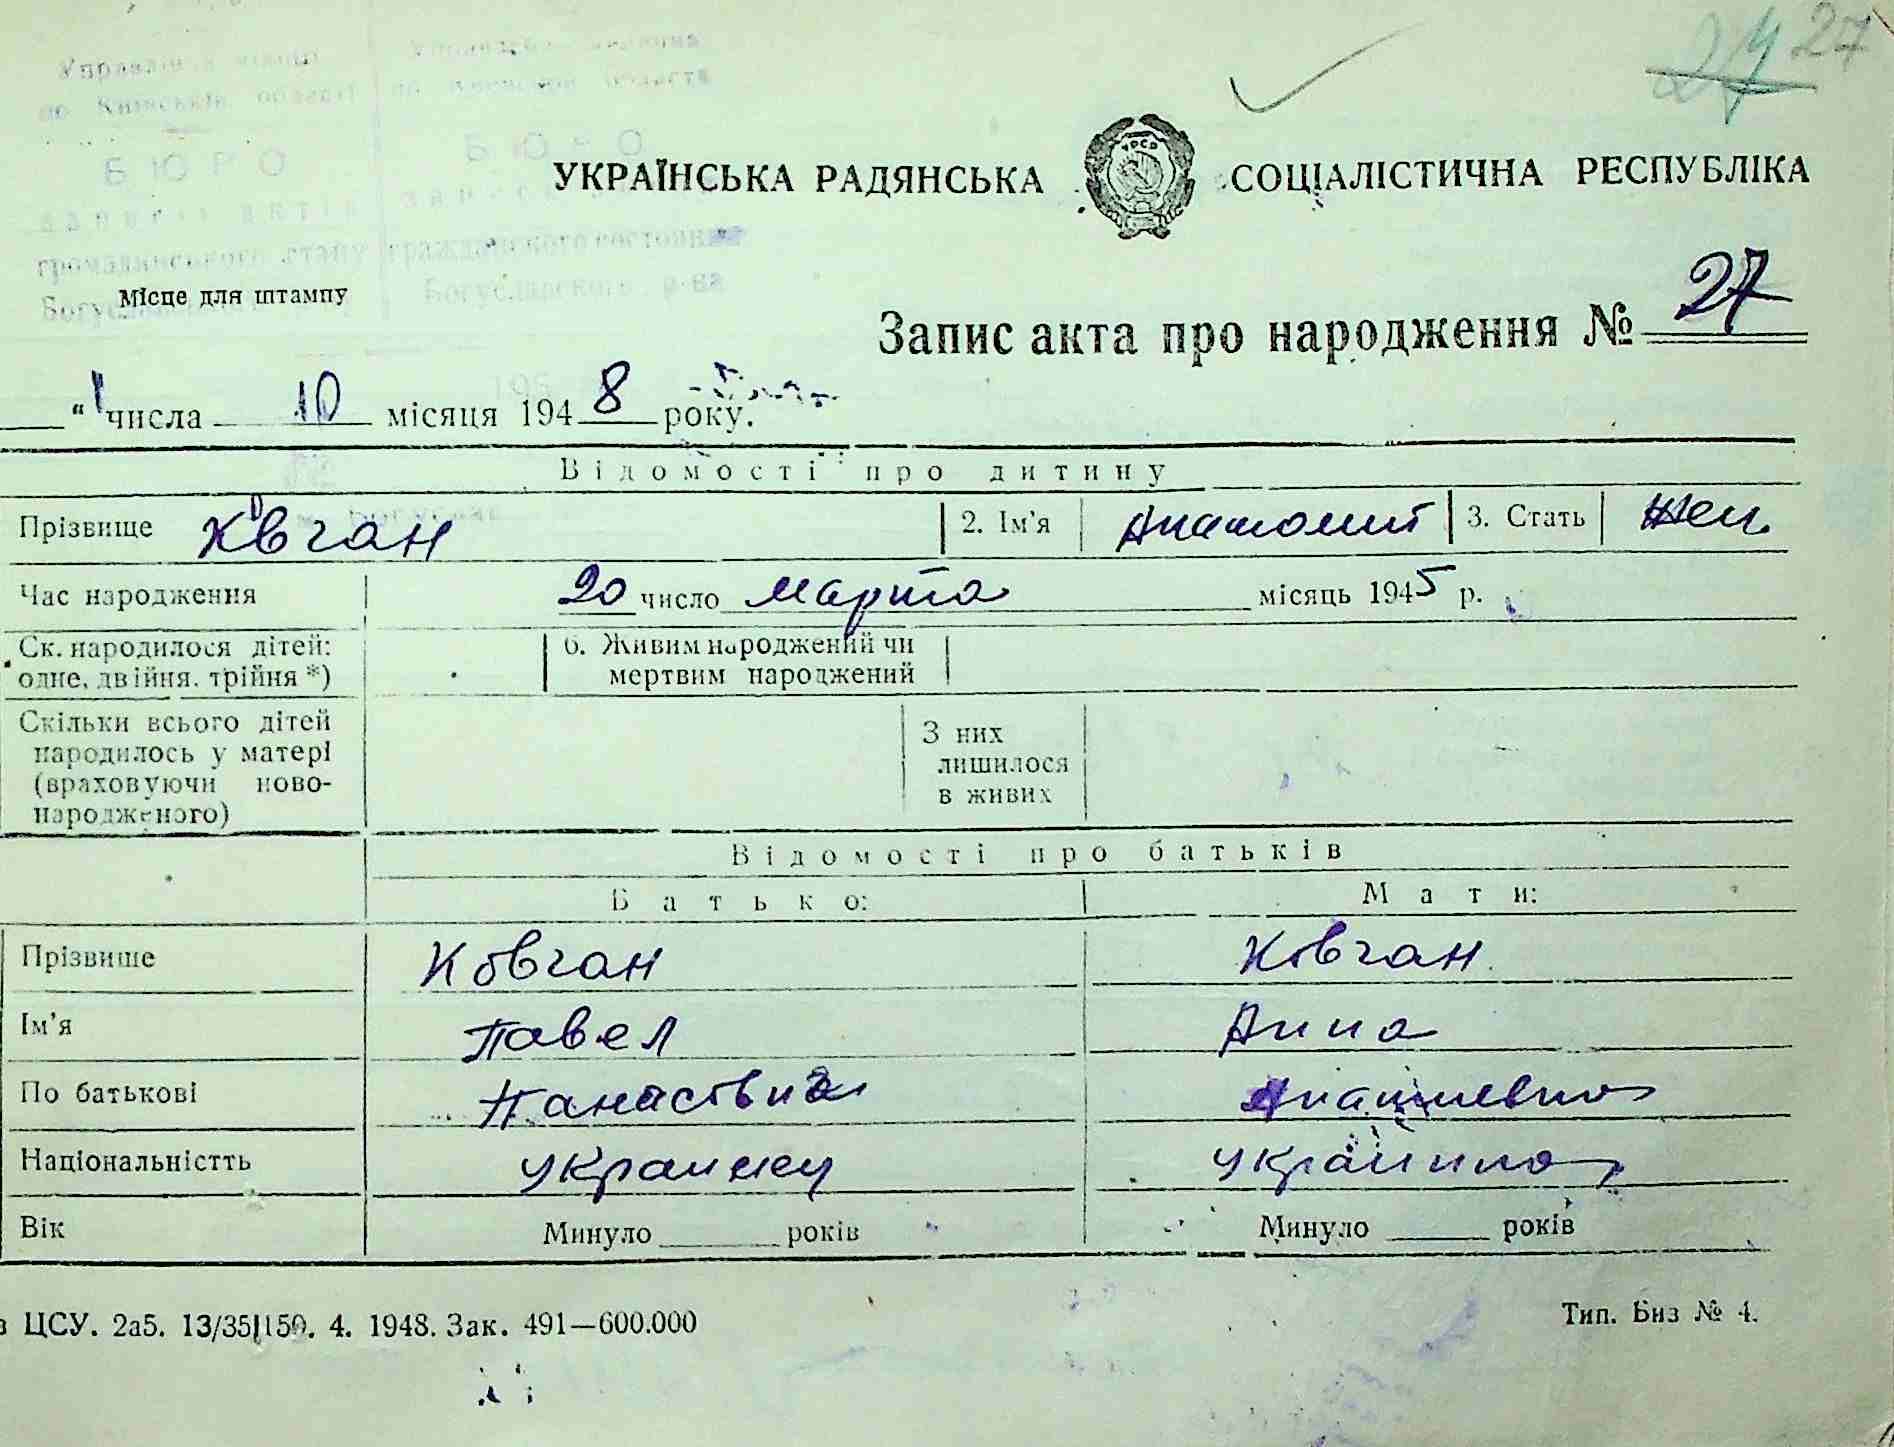 24 27
Управління міліції
по Київській області
по Киевской области
БЮРО
БЮРО
записів актів
громадянського стану
гражданского состояния
Богуславского р-на
УКРАЇНСЬКА РАДЯНСЬКА СОЦІАЛІСТИЧНА РЕСПУБЛІКА
УРСР
Місце для штампу
Запис акта про народження № 27
“ числа 10 місяця 1948 року.
Відомості про дитину
Прізвище Ковган 2. Ім'я Анатолий 3. Стать
Час народження 20 число марта місяць 1945 р.
Ск. народилося дітей: одне, двійня, трійня *) 6. Живим народжений чи мертвим народжений
Скільки всього дітей народилось у матері (враховуючи ново-народженого) З них лишилося в живих
Відомості про батьків
Батько: Мати:
Прізвише Ковган Ковган
Ім'я Павел Анна
По батькові Панасович
Національністть украинец украинка
Вік Минуло ______ років Минуло ______ років
з ЦСУ. 2а5. 13/35 150. 4. 1948. Зак. 491—600.000 Тип. Биз № 4.